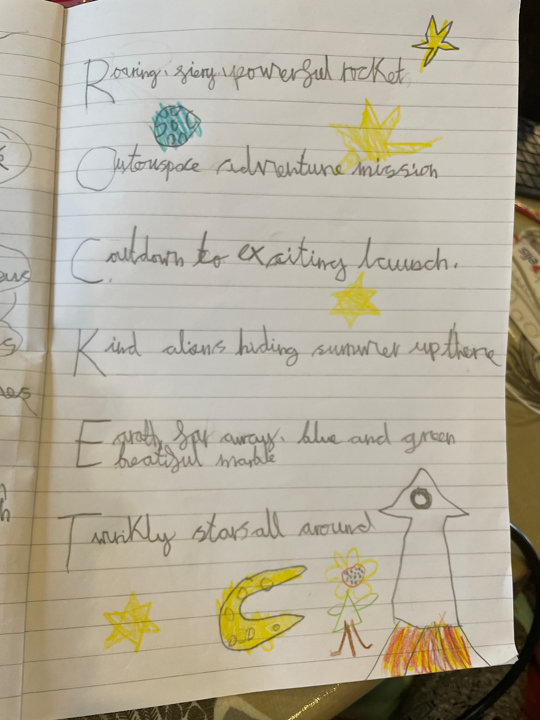 Roaring, fiery, powerful rocket
Outouspace adventure mission
Coutdown to exaiting launch.
Kind aliens hiding sumwer up there
Earath far away. blue and green
beatiful marble
Twinkly stars all around